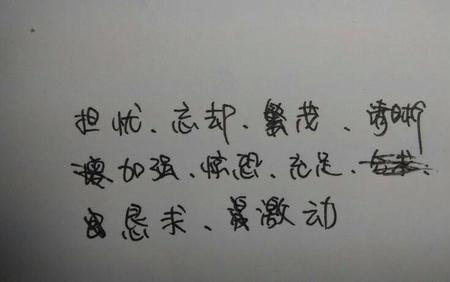 担忧、忘却、繁茂、清晰
加强、惊恐、充足、
恳求、激动